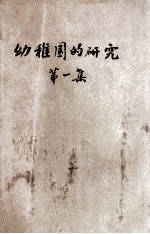 幼稚園的研究
第一集